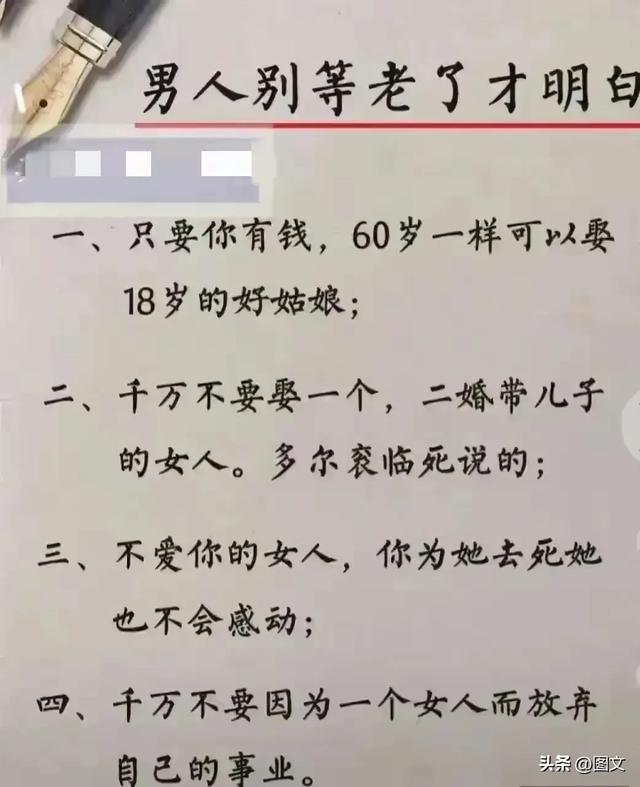 男人别等老了才明白
一、只要你有钱，60岁一样可以娶
18岁的好姑娘；
二、千万不要娶一个，二婚带儿子
的女人。多尔衮临死说的；
三、不爱你的女人，你为她去死她
也不会感动；
四、千万不要因为一个女人而放弃
自己的事业。
头条 @图文